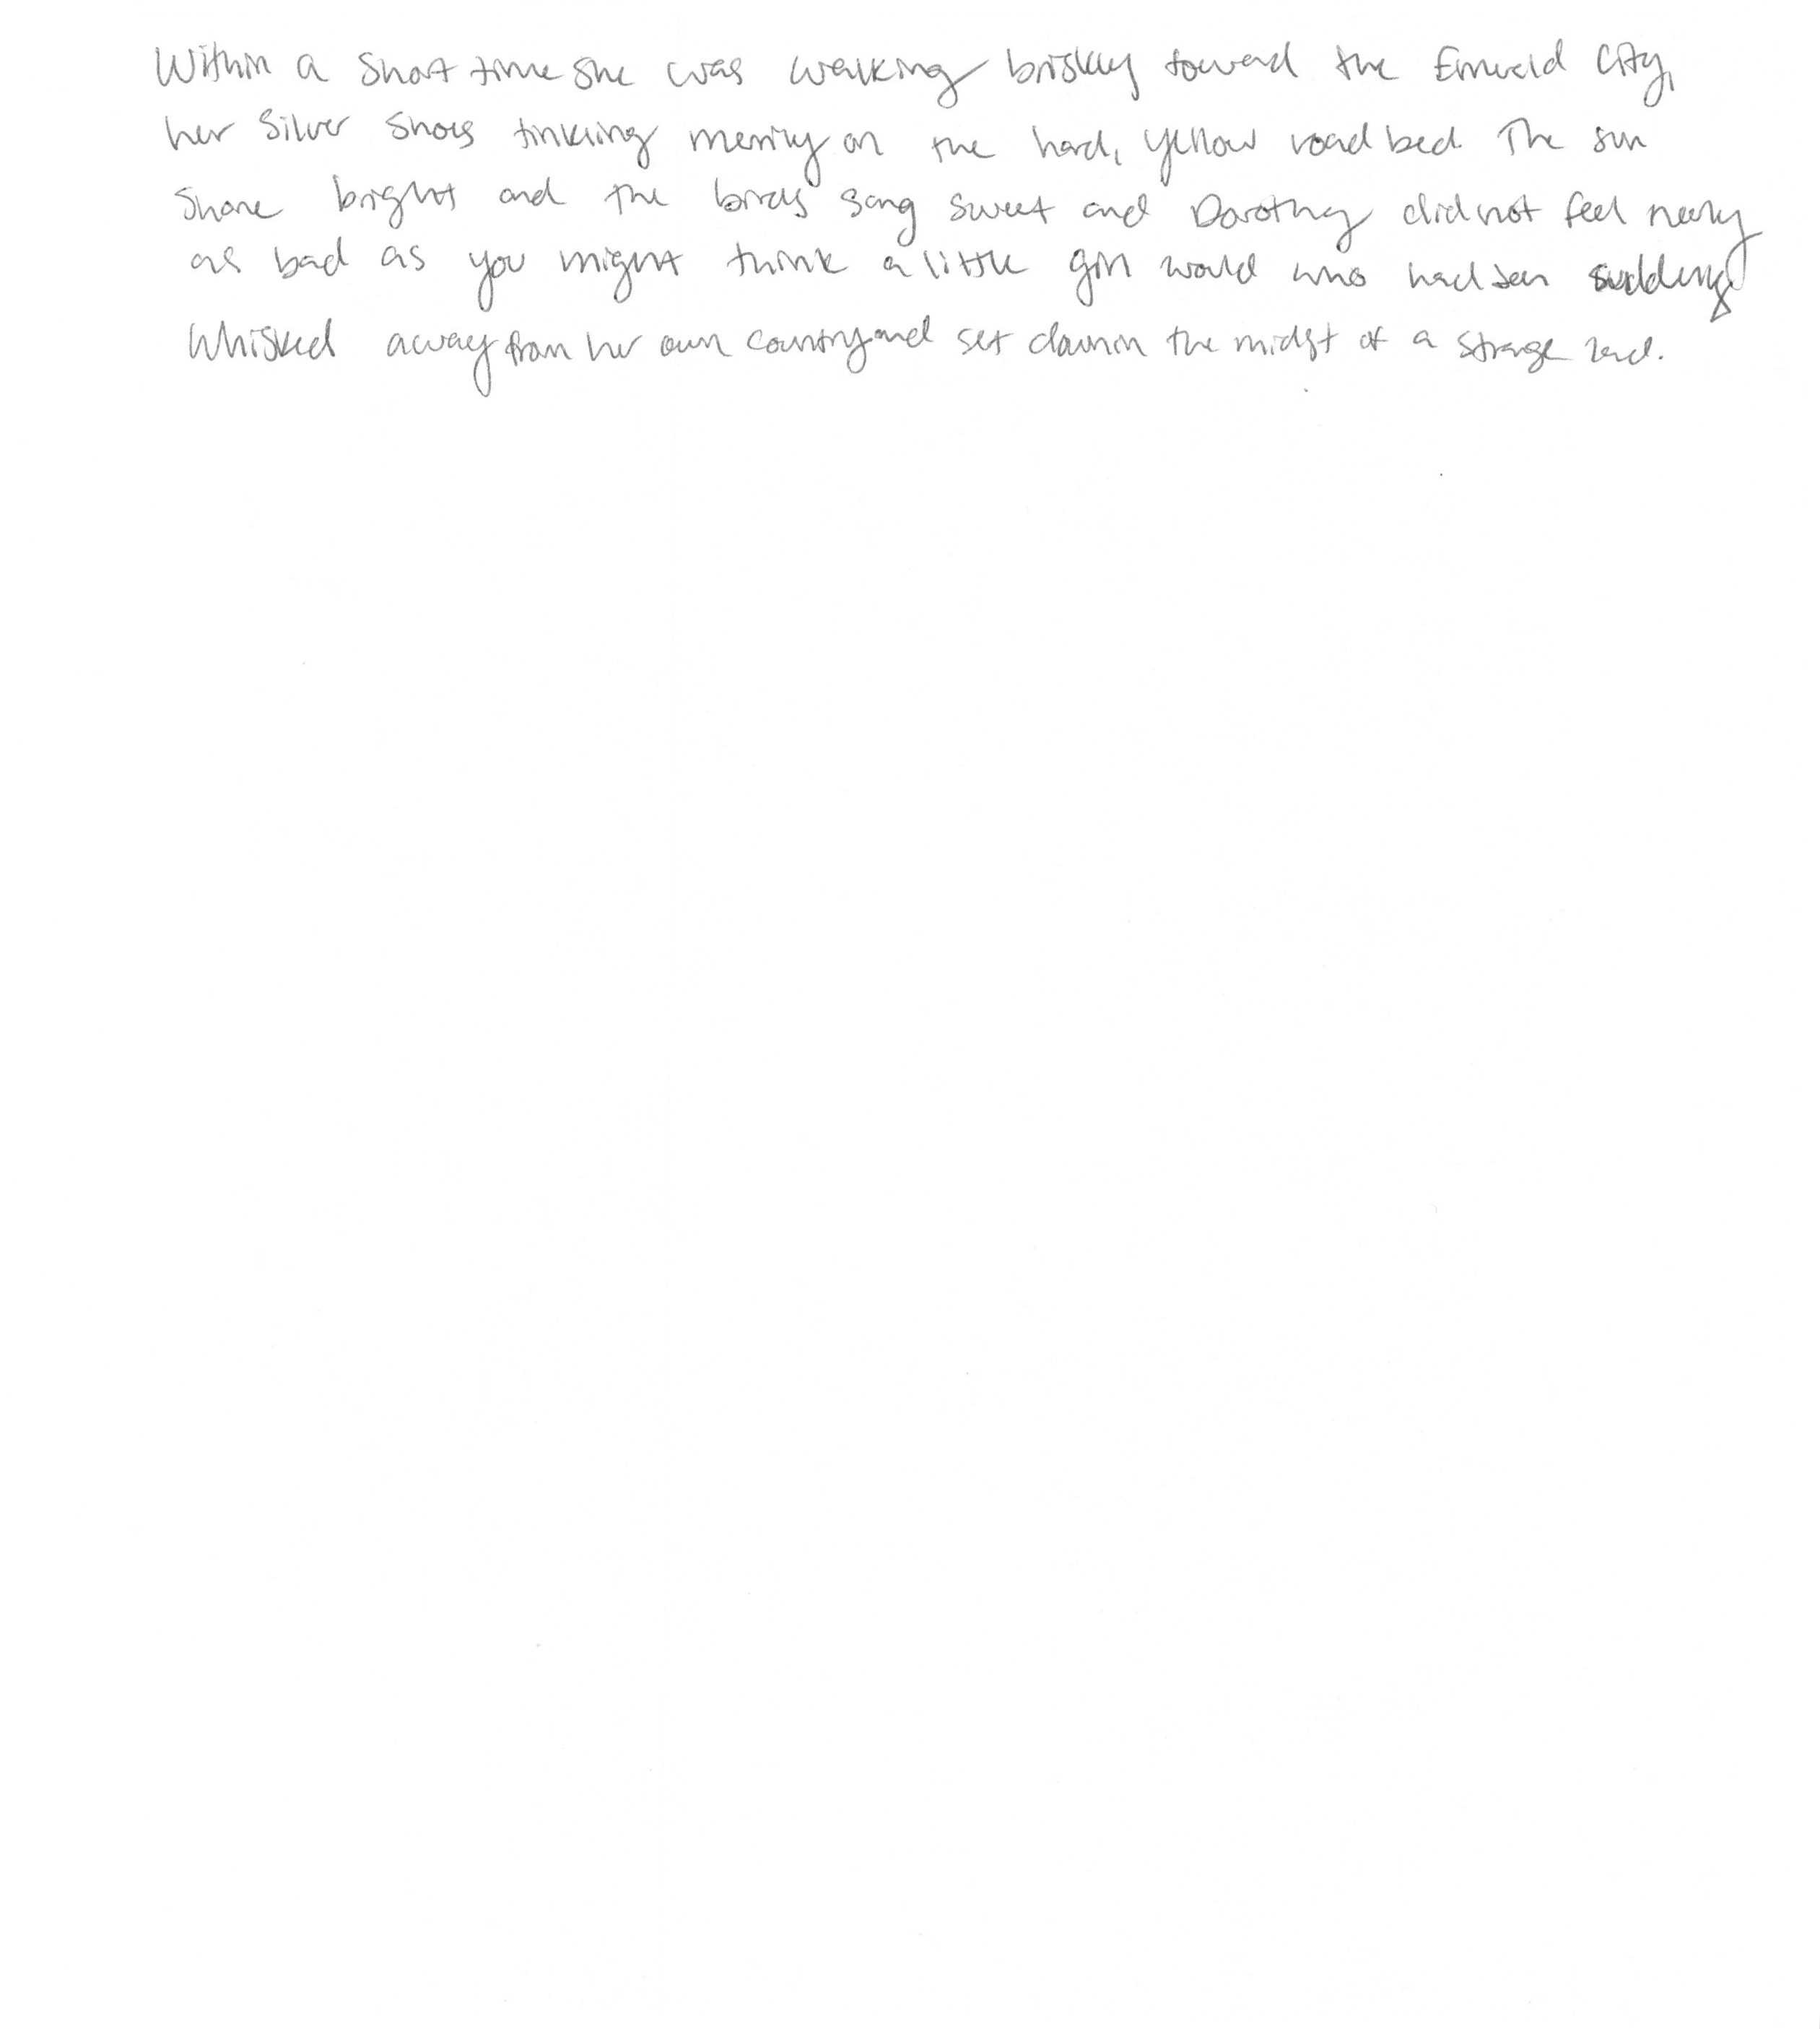 Within a short time she was walking briskly toward the Emerald City,
her Silver Shoes tinkling merrily on the hard, yellow road bed. The sun
shone bright and the birds sang sweet and Dorothy did not feel nearly
as bad as you might think a little girl would who had been suddenly
whisked away from her own country and set down in the midst of a strange land.